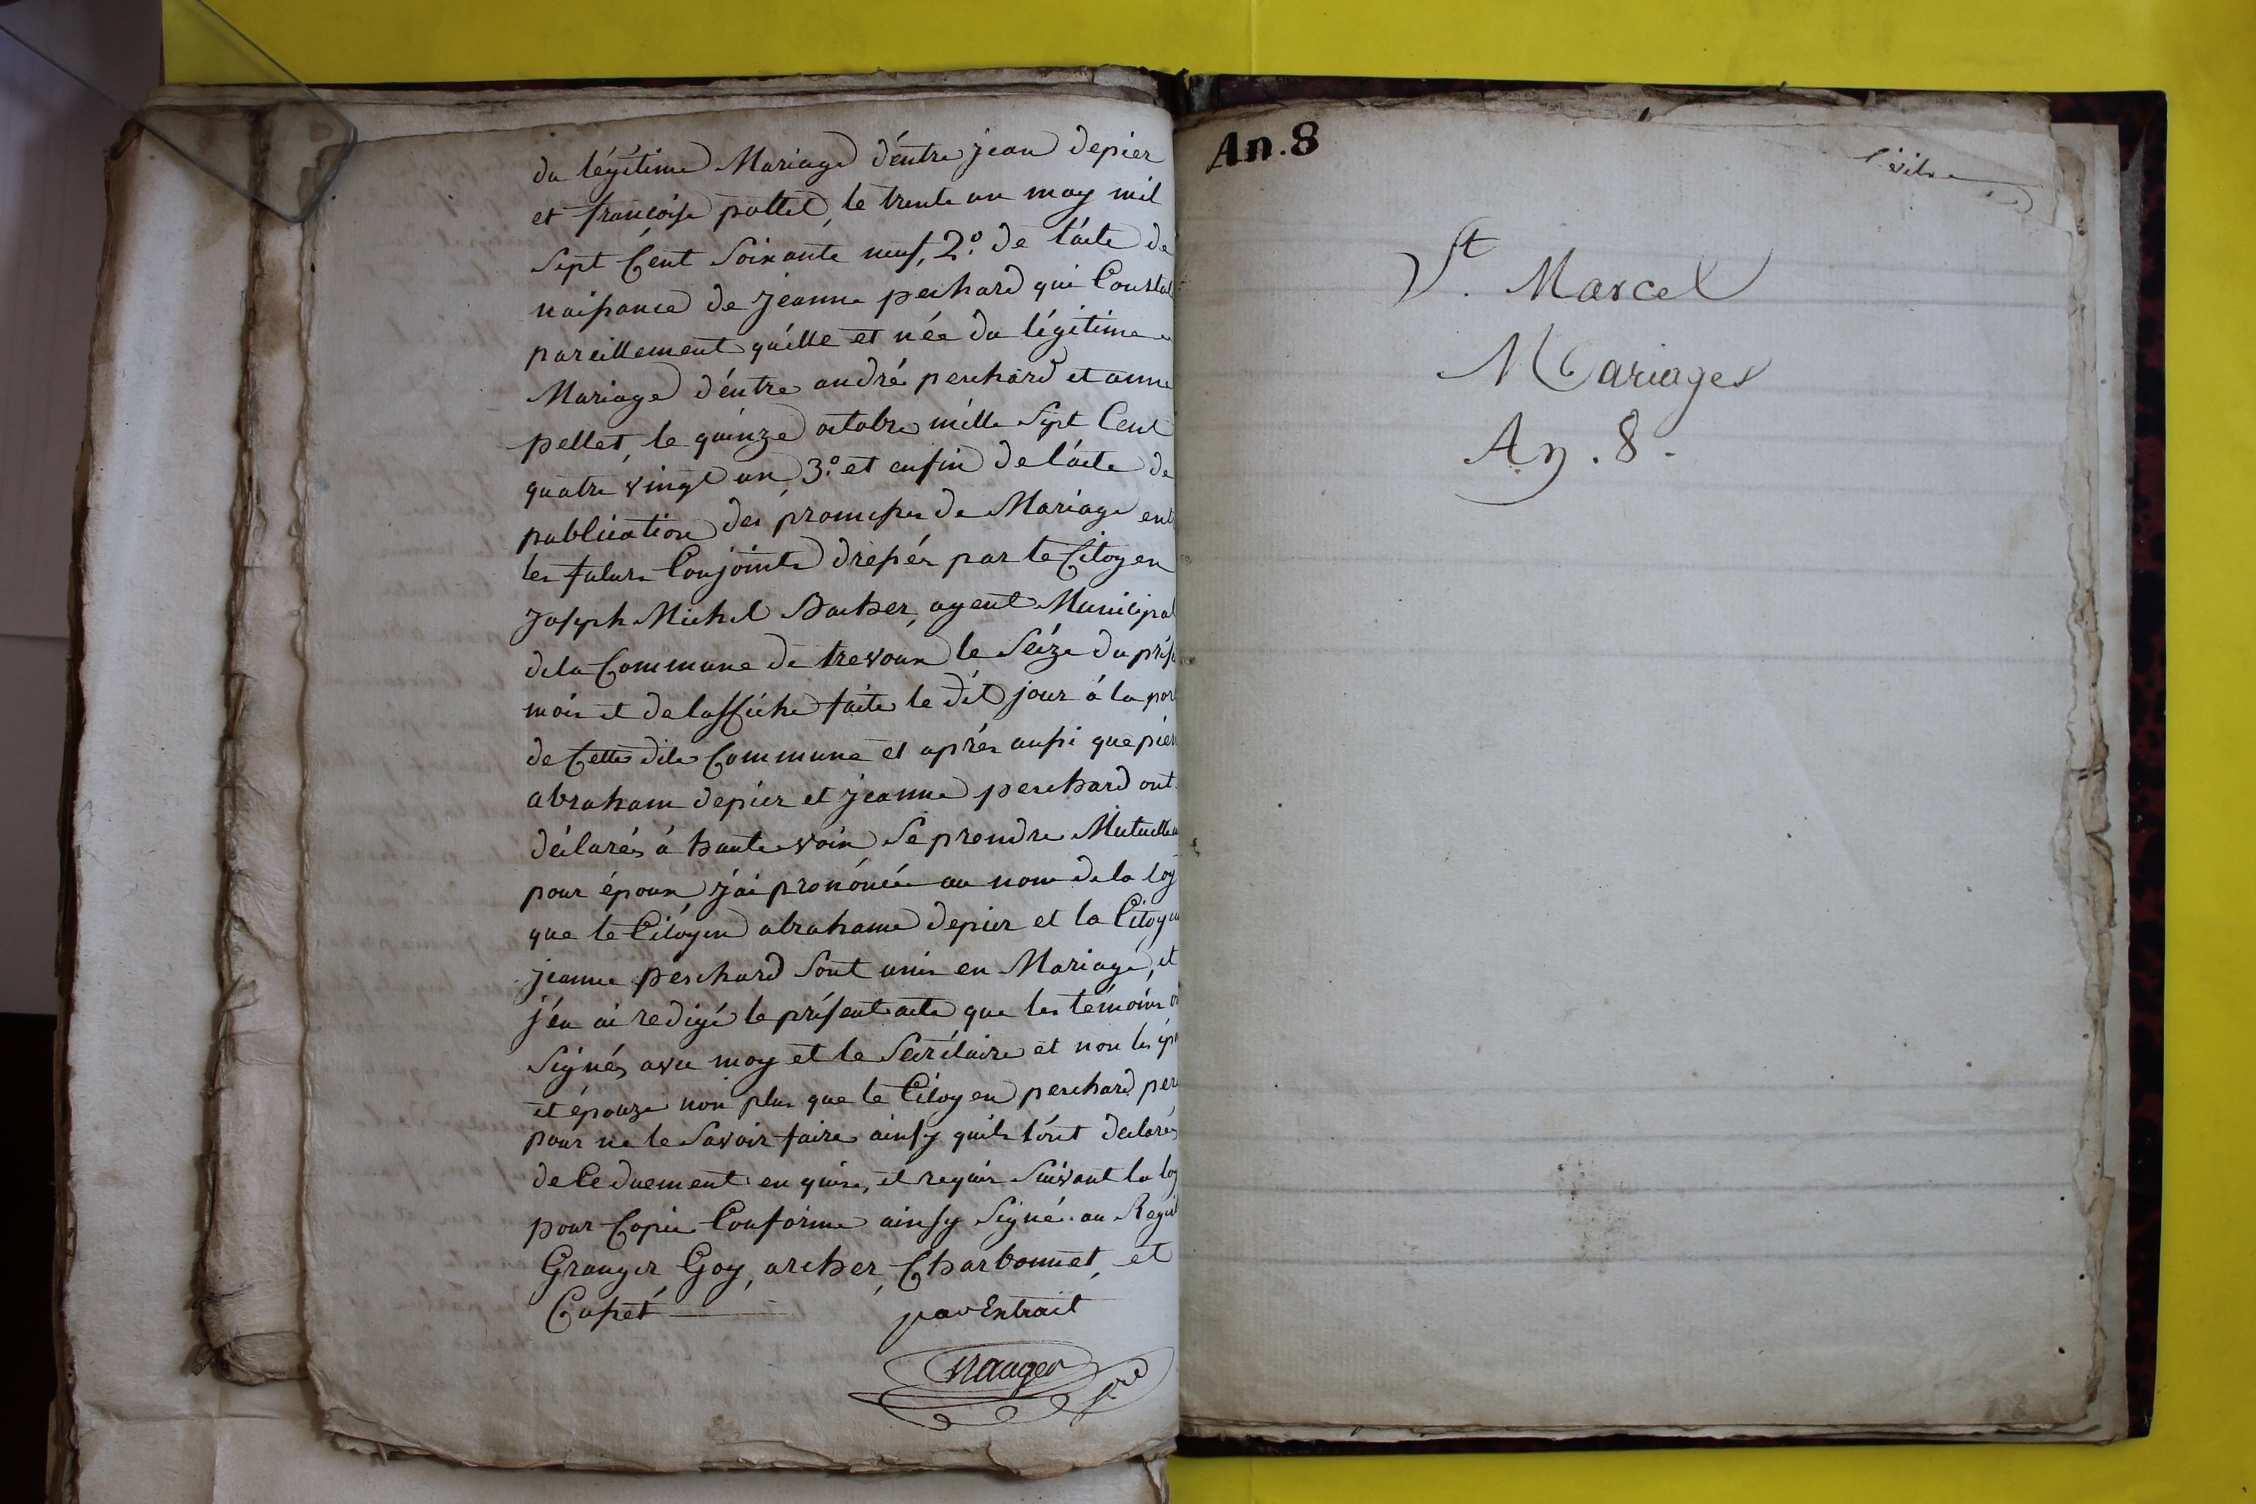 du légitime Mariage d'éntre jean depier
et françoise pollet, le trente un may mil
sept Cent soixante neuf, 2.º de l'acte de
naissance de jeanne perchard qui Constat
pareillement qu'elle et née du légitime
Mariage d'éntre andré perchard et anne
pellet, le quinze octobre mille sept Cent
quatre vingt un, 3.º et enfin de l'acte de
publication des promesses de Mariage ent
les futurs Conjoints dressés par le Citoyen
Joseph Michel archer, agent Municipal
de la Commune de trevoux le séize du prés
mois et de laffiche faite le dit jour á la por
de Cette dite Commune et aprés aussi que pier
abraham depier et jeanne perchard ont
déclarés á haute voix se prendre Mutuelle
pour époux, j'ai prononcée au nom de la loy
que le Citoyen abrahame depier et la Citoy
jeanne perchard sont unis en Mariage, et
j'én ai redigé le présent acte que les témoins o
signés avec moy et le secrétaire et non les ép
et épouze non plus que le Citoyen perchard per
pour ne le savoir faire ainsy quils l'ont declarés
de Ce duement enquis, et requis suivant la loy
pour Copie Conforme ainsy signé au Regis
Granger Goy, archer, Charbonnet, et
Cusset par Extrait
An. 8
St. Marcel
Mariages
An. 8.